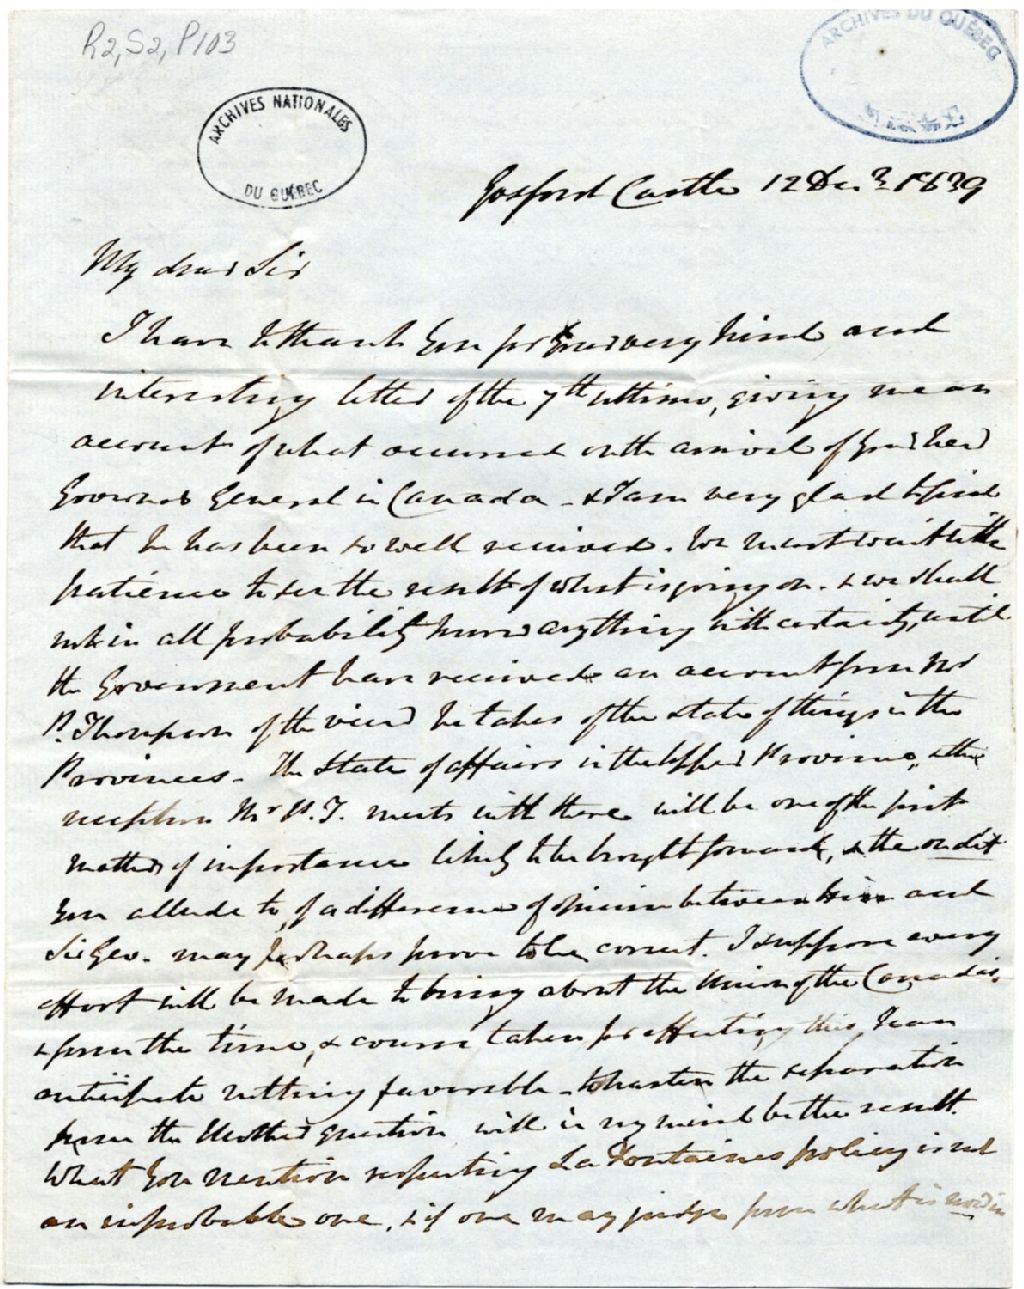 R2, S2, P103
ARCHIVES NATIONALES
DU QUÉBEC
ARCHIVES DU QUÉBEC
Gosford Castle 12 Decr. 1839
My dear Sir
I have to thank you for your very kind and
interesting letter of the 7th ultimo, giving me an
account of what occurred on the arrival of your new
Governor General in Canada - & I am very glad to find
that he has been so well received. We must wait with
patience to see the result of what is going on - & we shall
not in all probability know anything with certainty, until
the Government have received an account from Mr
P. Thompson of the view he takes of the state of things in the
Provinces - The State of affairs in the Upper Province, & the
reception Mr P. T. meets with there will be one of the first
matters of importance likely to be brought forward, & the on dit
you allude to of a difference of opinion between him and
Sir Geo. may perhaps prove to be correct. I suppose every
effort will be made to bring about the Union of the Canadas,
& from the time, & course taken for effecting this, I can
anticipate nothing favorable - to hasten the separation
from the Mother will in my mind be the result.
What you mention respecting La Fontaines policy is not
an improbable one, & if one may judge from what is now in